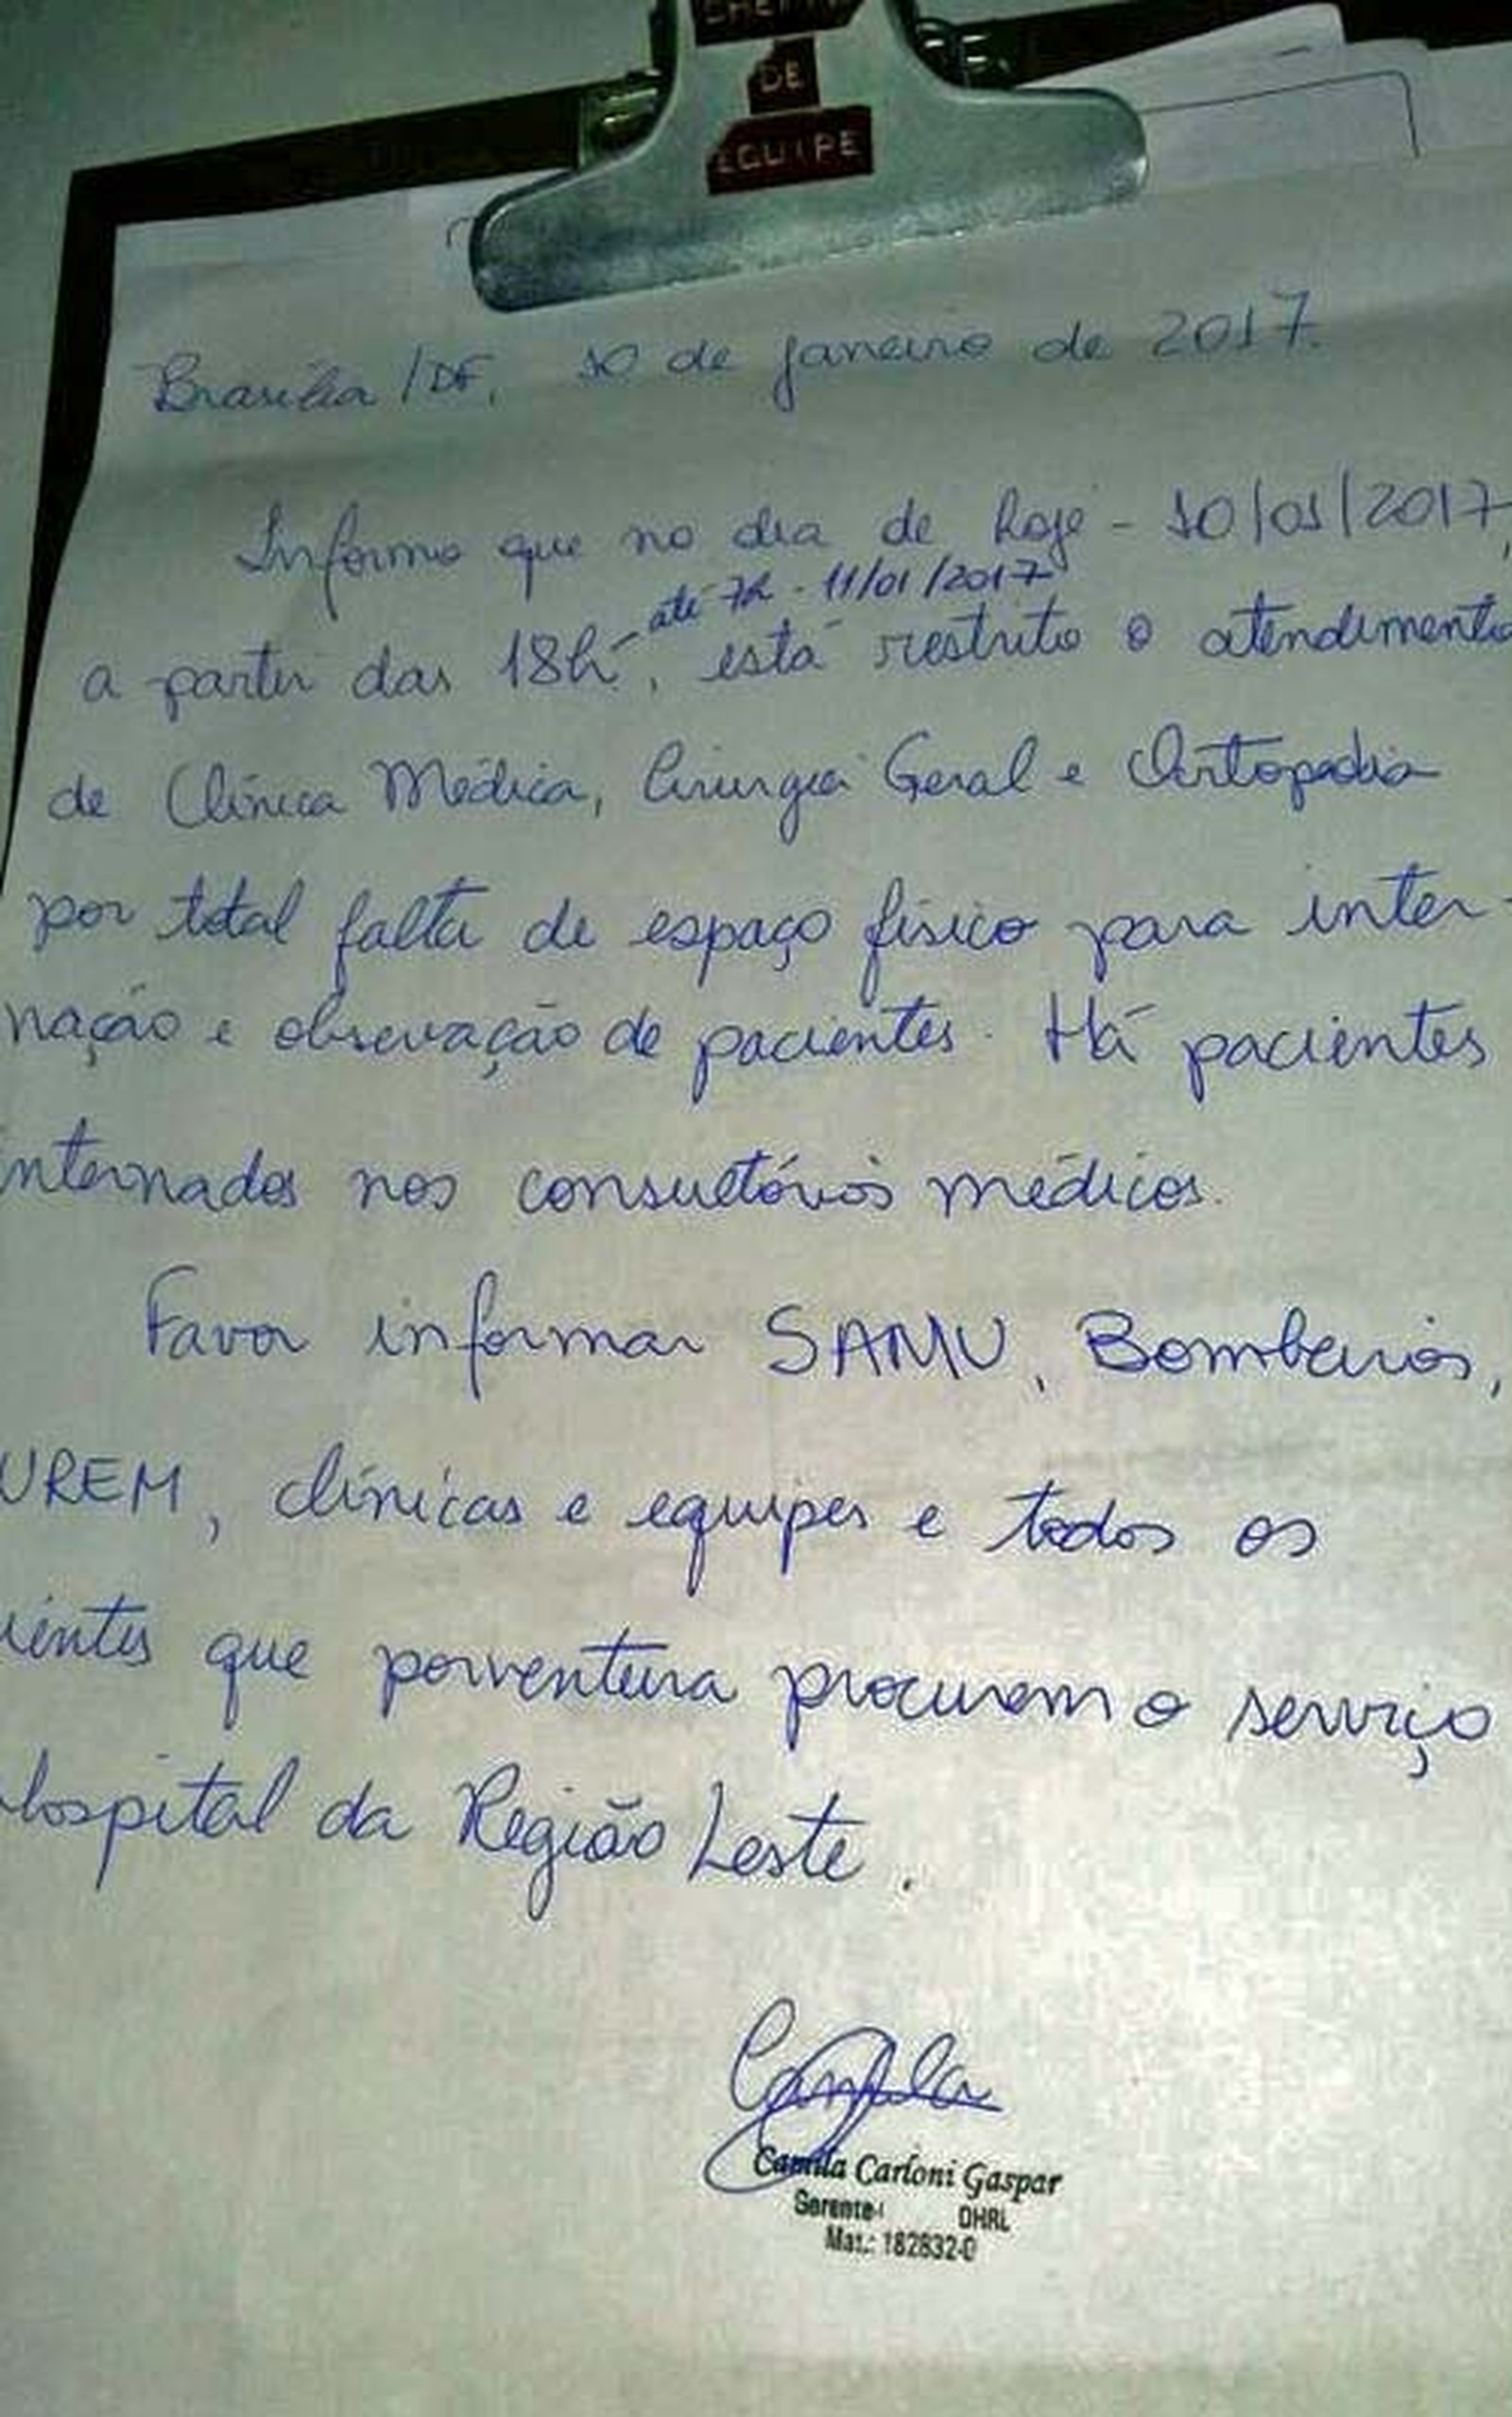 DE
EQUIPE
Brasília/DF, 10 de janeiro de 2017.
Informo que no dia de hoje - 10/01/2017,
até 7h - 11/01/2017
a partir das 18h, está restrito o atendimento
de Clínica Médica, Cirurgia Geral e Ortopedia
por total falta de espaço físico para inter-
nação e observação de pacientes. Há pacientes
internados nos consultórios médicos.
Favor informar SAMU, Bombeiros,
UREM, clínicas e equipes e todos os
que porventura procurem o serviço
Hospital da Região Leste.
Camila
Camila Carloni Gaspar
Gerente DHRL
Mat.: 182832-0